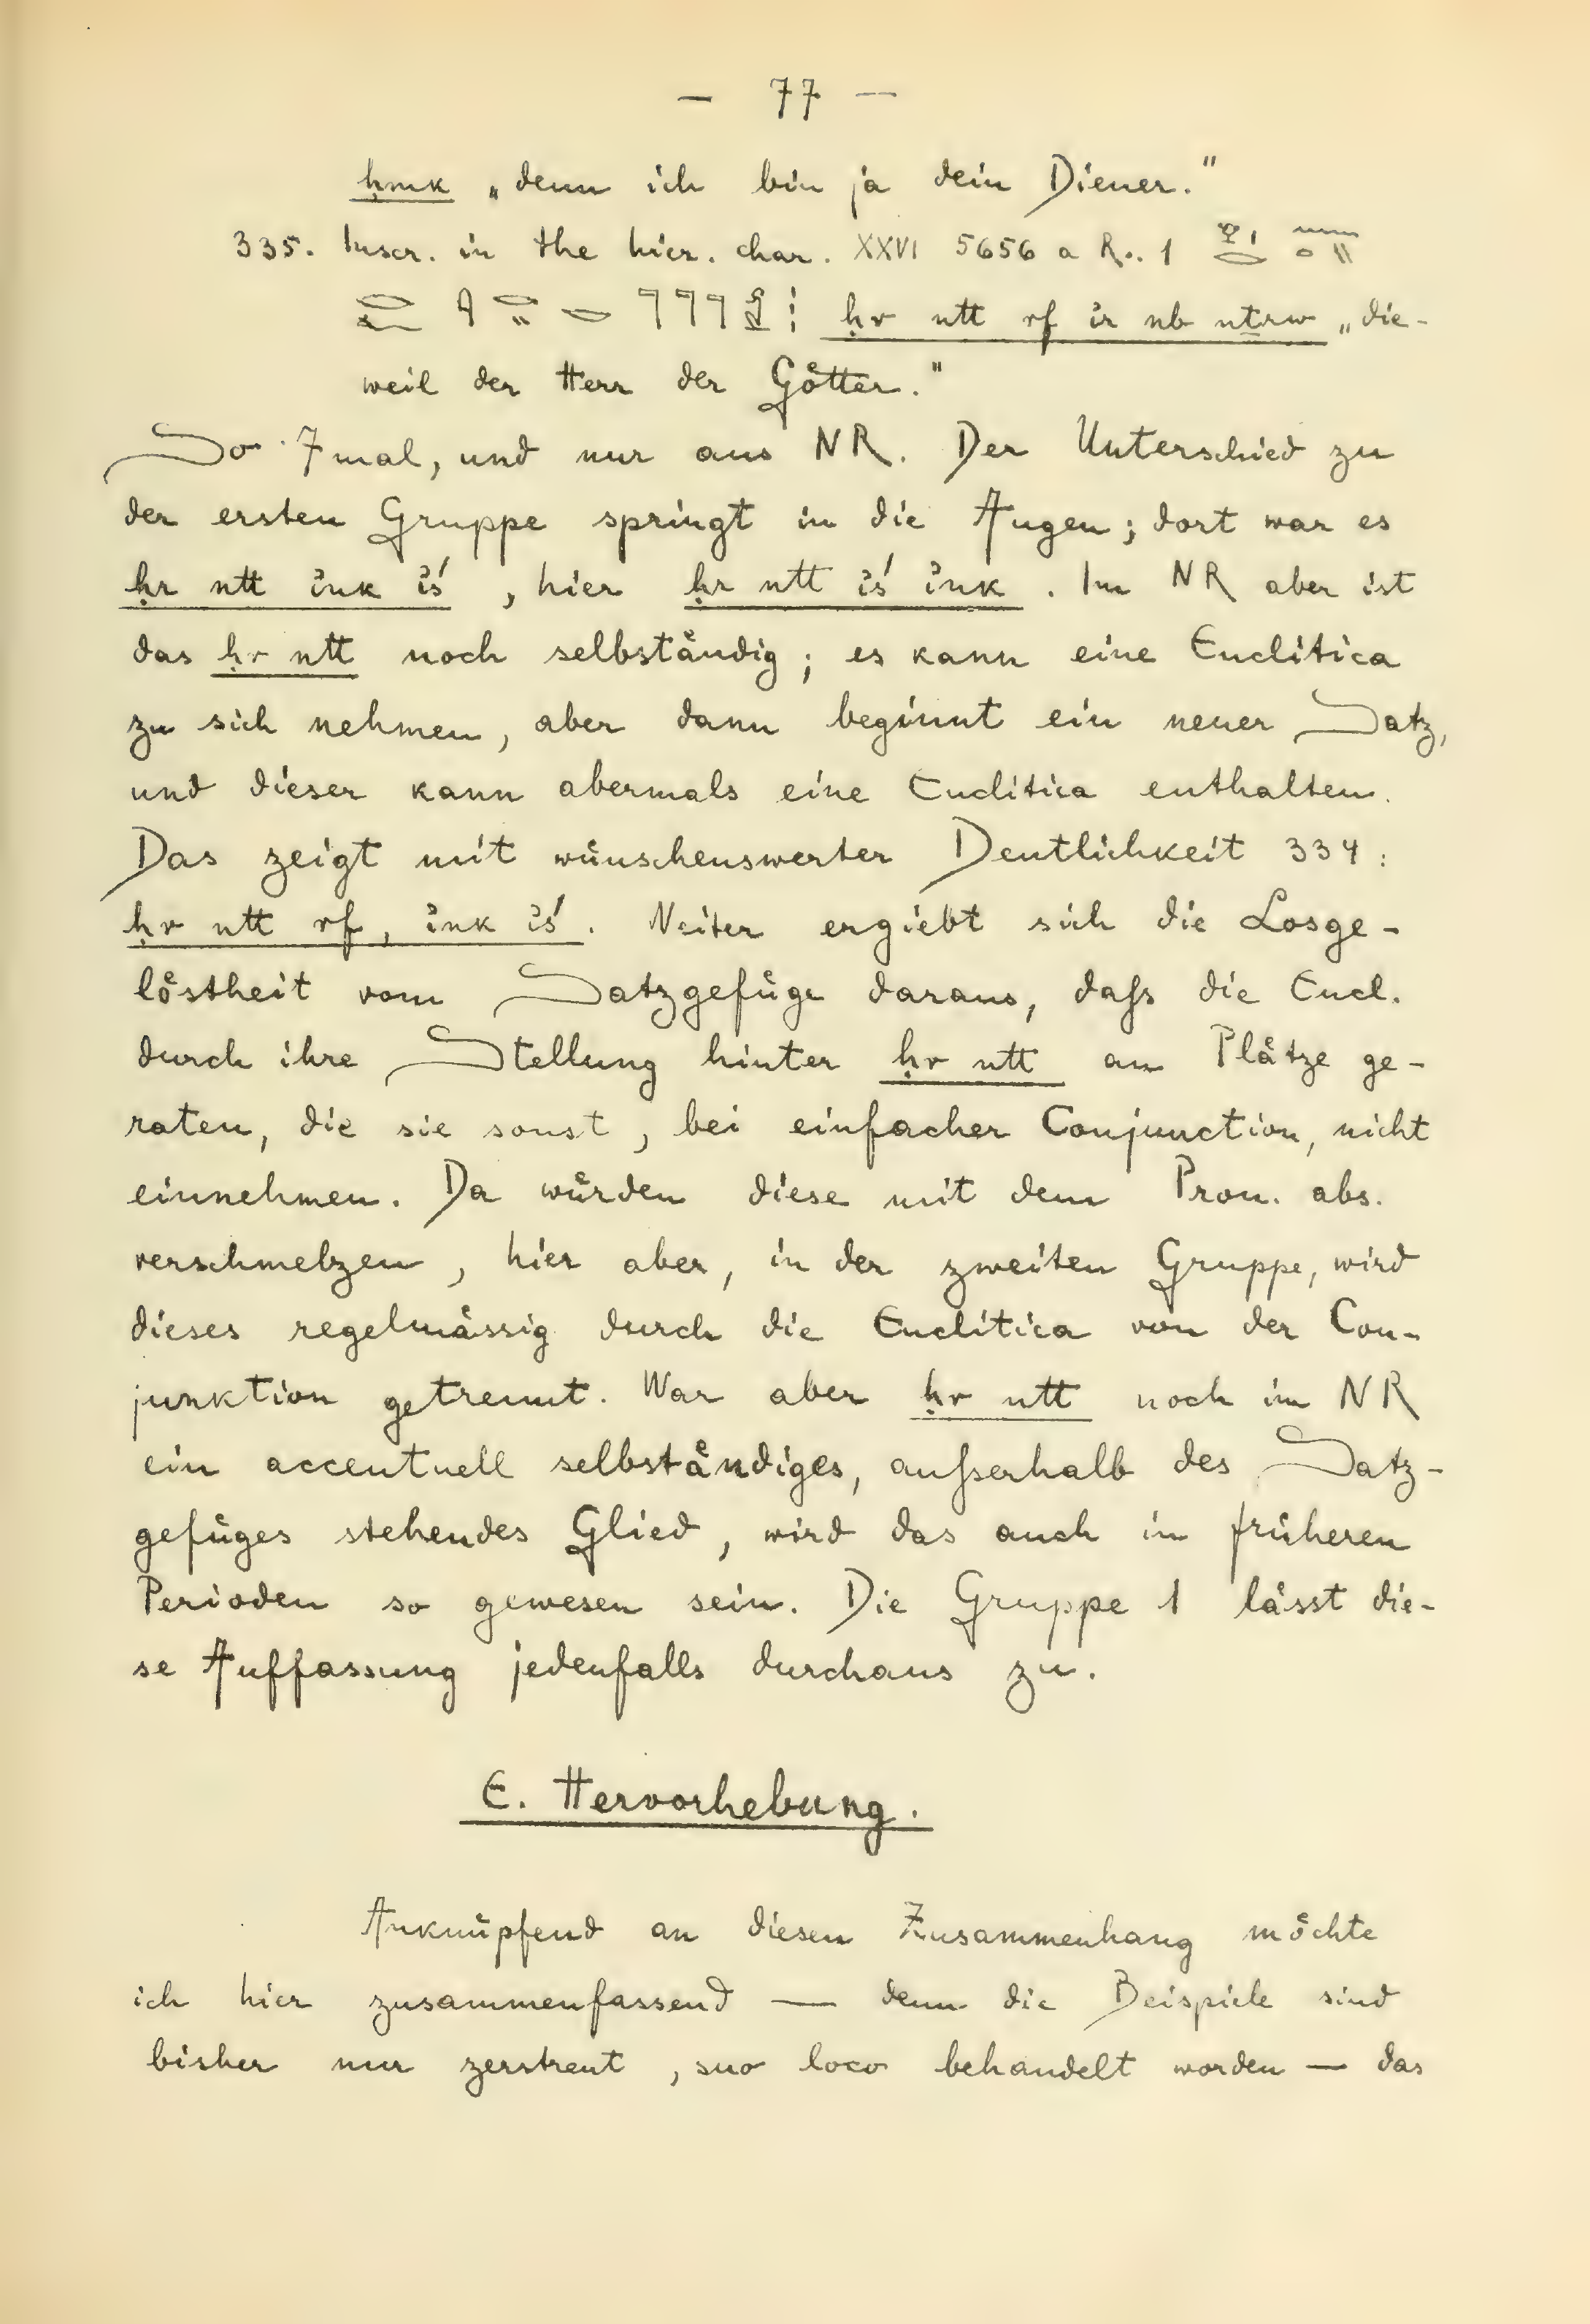 — 77 —
ḥmk „denn ich bin ja dein Diener."
335. Inscr. in the hier. char. XXVI 5656 a R.. 1
ḥr ntt rf ir nb nṯrw „die-
weil der Herr der Götter."
So 7mal, und nur aus NR. Der Unterschied zu
der ersten Gruppe springt in die Augen; dort war es
ḥr ntt ỉnk ỉś , hier ḥr ntt ỉś ỉnk . Im NR aber ist
das ḥr ntt noch selbständig; es kann eine Enclitica
zu sich nehmen, aber dann beginnt ein neuer Satz,
und dieser kann abermals eine Enclitica enthalten.
Das zeigt mit wünschenswerter Deutlichkeit 334:
ḥr ntt rf, ỉnk ỉś. Weiter ergiebt sich die Losge-
löstheit vom Satzgefüge daraus, daſs die Encl.
durch ihre Stellung hinter ḥr ntt an Plätze ge-
raten, die sie sonst, bei einfacher Conjunction, nicht
einnehmen. Da würden diese mit dem Pron. abs.
verschmelzen, hier aber, in der zweiten Gruppe, wird
dieses regelmässig durch die Enclitica von der Con-
junktion getrennt. War aber ḥr ntt noch im NR
ein accentuell selbständiges, auſserhalb des Satz-
gefüges stehendes Glied, wird das auch in früheren
Perioden so gewesen sein. Die Gruppe 1 lässt die-
se Auffassung jedenfalls durchaus zu.
E. Hervorhebung.
Anknüpfend an diesen Zusammenhang möchte
ich hier zusammenfassend — denn die Beispiele sind
bisher nur zerstreut, suo loco behandelt worden — das